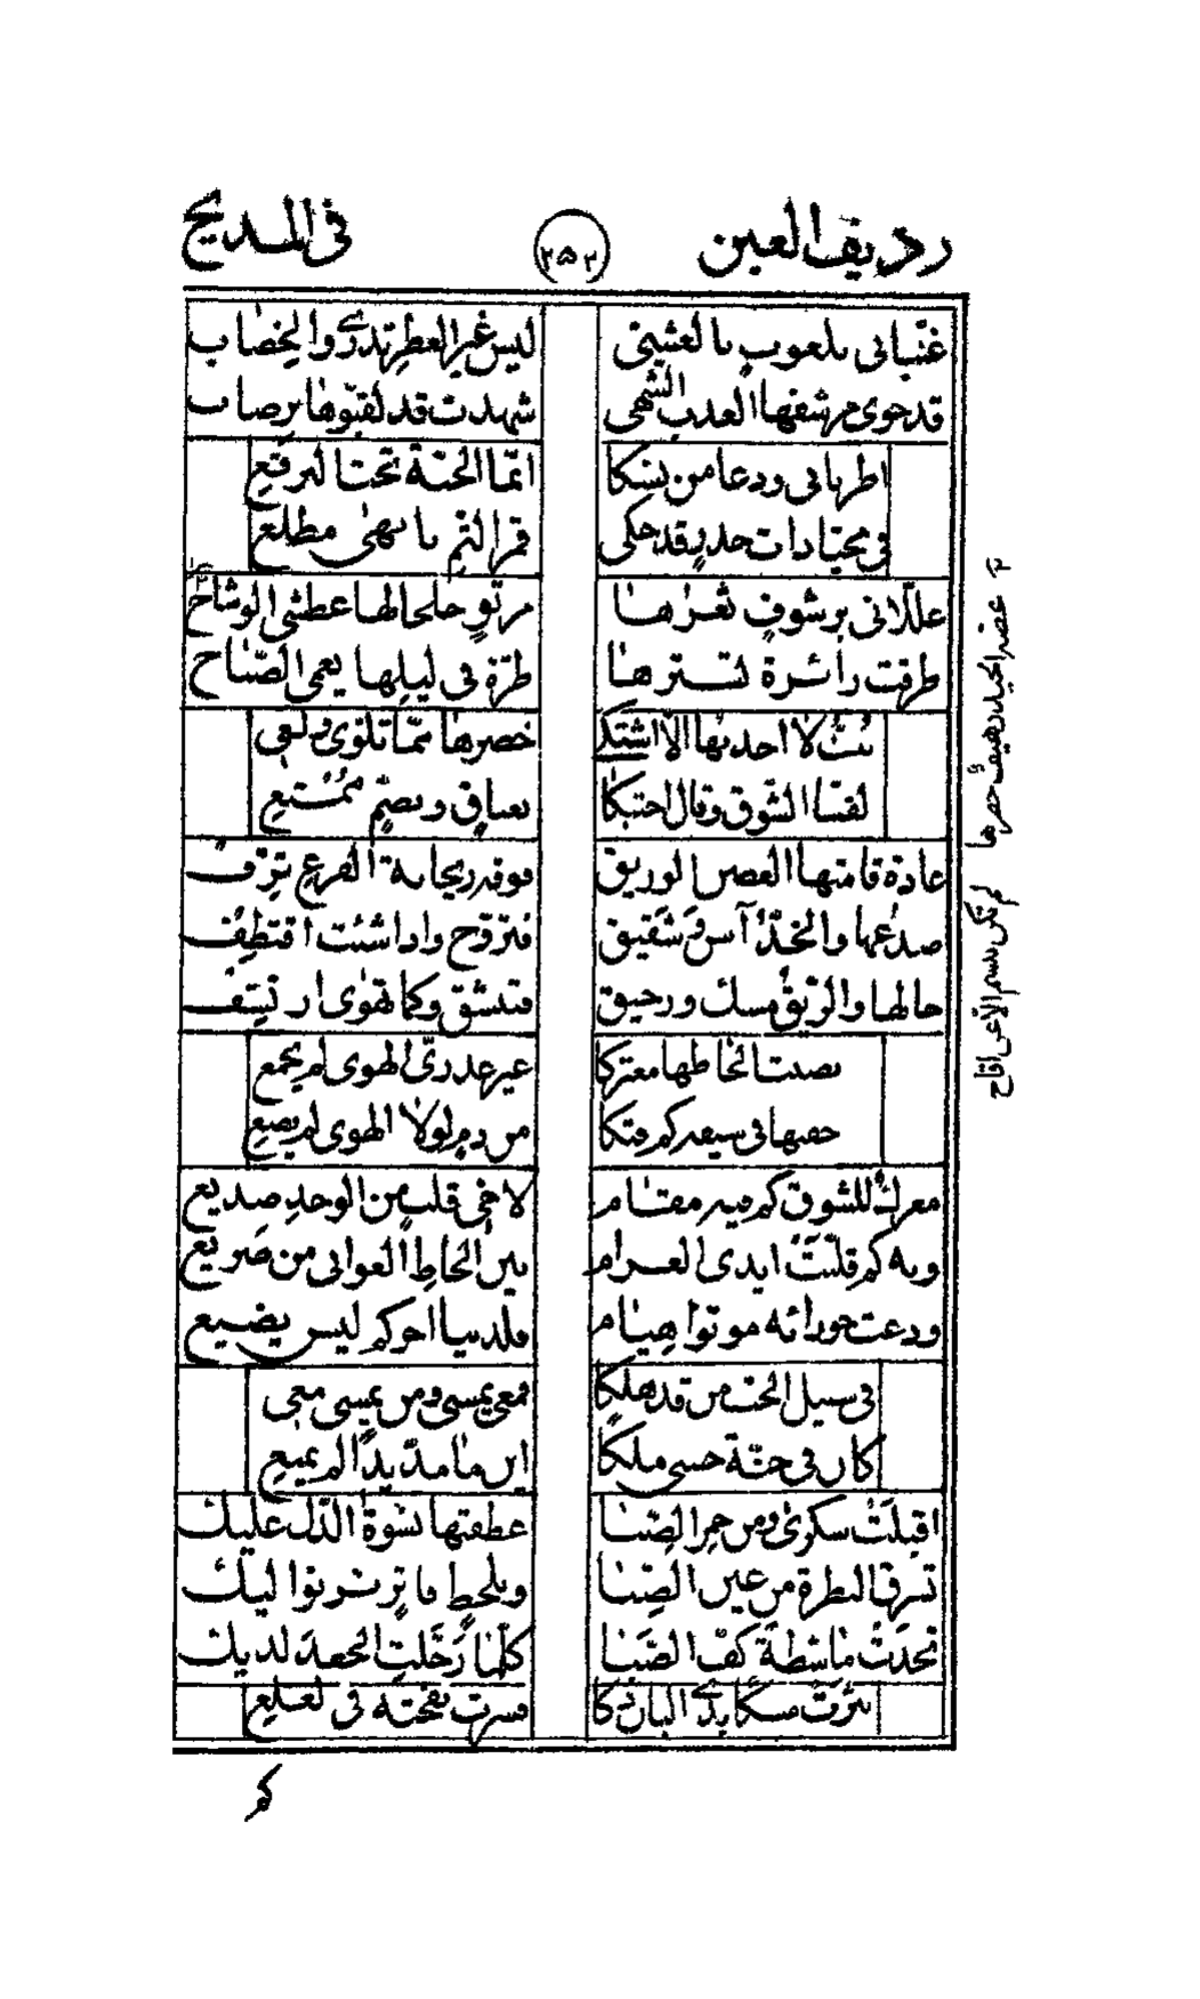 رديف العين ٢٥٢ في المديح
غنّياني بلعوب بالعشيّ ليس غير العطر تدري والخضاب
قد حوى مرشفها العذب الشهي شهدت قد لقّبوها برضاب
اطرباني ودعا من نسكا انّما الجنة تحت البرقع
في محيّا ذات خدر قد حكى قمر التمّ بابهى مطلع
علّلاني برشوف ثغرها مرتو خلخالها عطشى الوشاح
طرقت زائرة تسترها طرّة في ليلها يعمى الصّباح
بتّ لا احذ بها الّا اشتكى خصرها ممّا تلوّى
لفّنا الشوق وقال احتبكا بعناق وبضمّ ممتع
غادة قامتها الغصن الوريق فوقه ريحانة الفرع ترفّ
صدغها والخدّ آس وشقيق فتروّح واذا شئت اقتطف
خالها والريق مسك ورحيق فتنشّق وكما تهوى ارتشف
نصبت الحاظها معتركا غير عذريّ الهوى لم يجمع
حقبها في سيفه كم فتكا من دم لولا الهوى لم يضع
معرك للشوق كم فيه مقام لاخي قلب من الوجد صديع
وبه كم قلّبت ايدي الغرام بين الحاظ الغواني من صريع
ودعت حورائه موتوا هيام فلدينا اجركم ليس يضيع
في سبيل الحب من قد هلكا فمعي يمسي ومن يمسي معي
كان في جنّة حسني ملكا
اقبلت سكرى ومن خمر الصّبا عطفتها نشوة الدّل عليك
تسرق النظرة من عين الظّبا وبلحظ فاتر ترنوا اليك
نحدت ماشطة كفّ الصّبا كلّما رجّلت الجعد لديك
نثرت مسكا بذي البان ذكا فسرت نفحته في لعلع
كم
عضّه الجيد رهيف خصرها لم تكن تبسم الّا عن اقاح